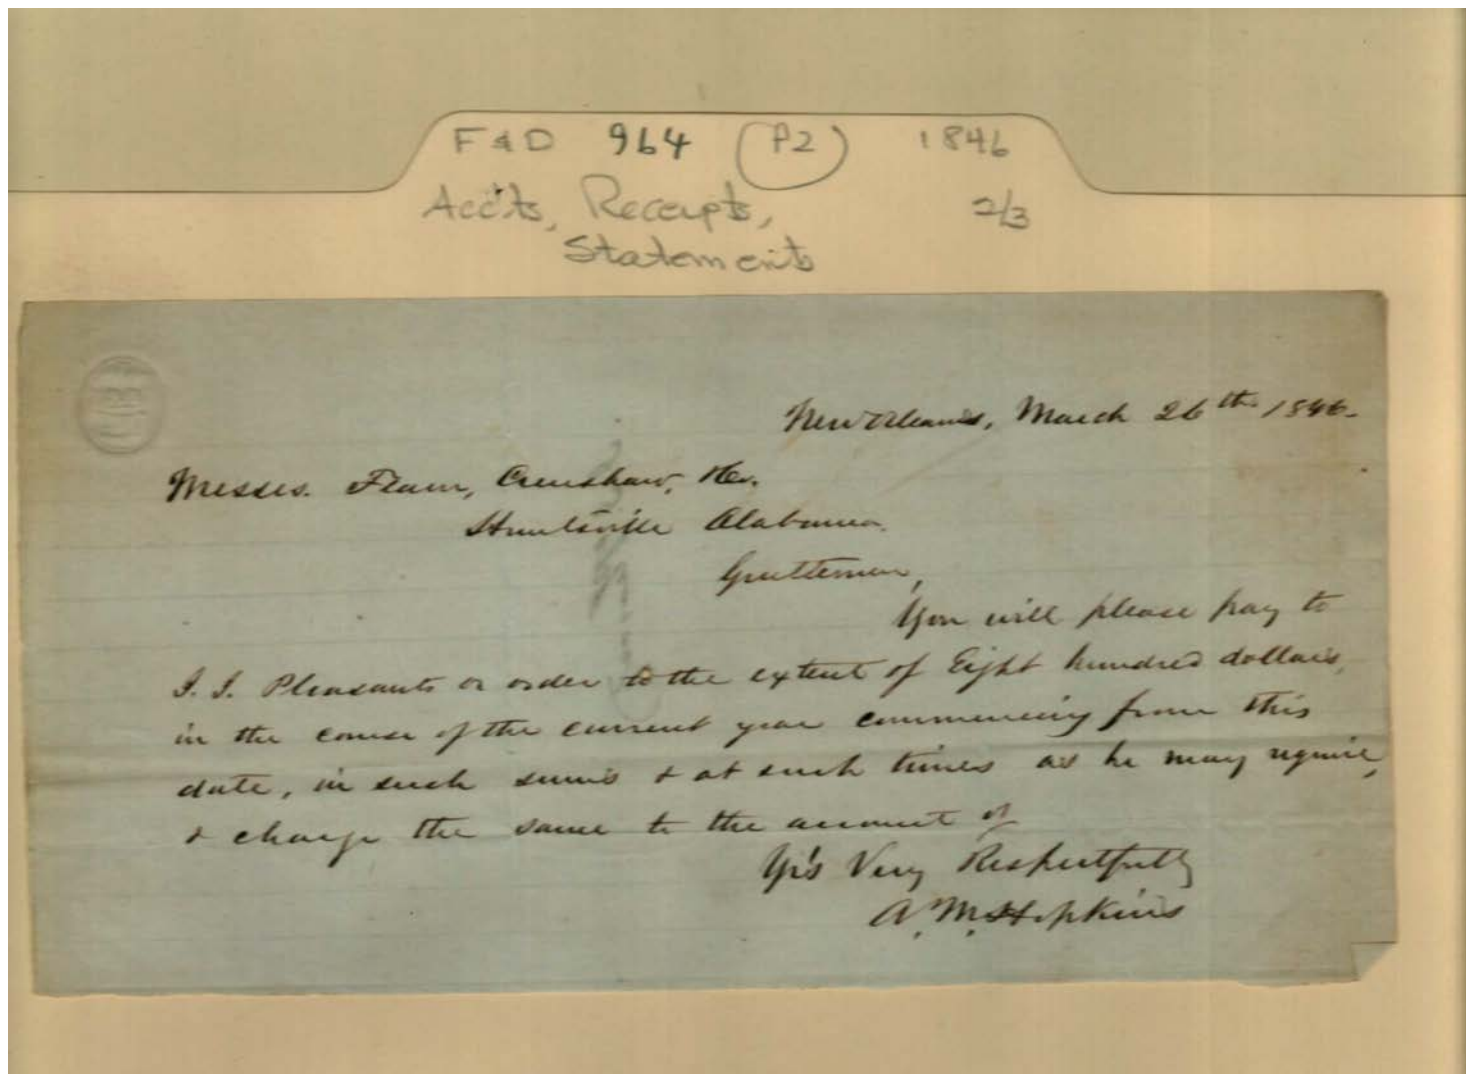 F & D 964 (P2) 1846
Acc'ts, Receipts, 2/3
Statements
New Orleans, March 26th 1846.
Messrs. Fearn, Crenshaw, &Co.
Huntsville Alabama.
Gentlemen,
You will please pay to
J. J. Pleasants or order to the extent of Eight hundred dollars,
in the course of the current year commencing from this
date, in such sums & at such times as he may require,
& charge the same to the account of
Yrs Very Respectfully
A. M. Hopkins